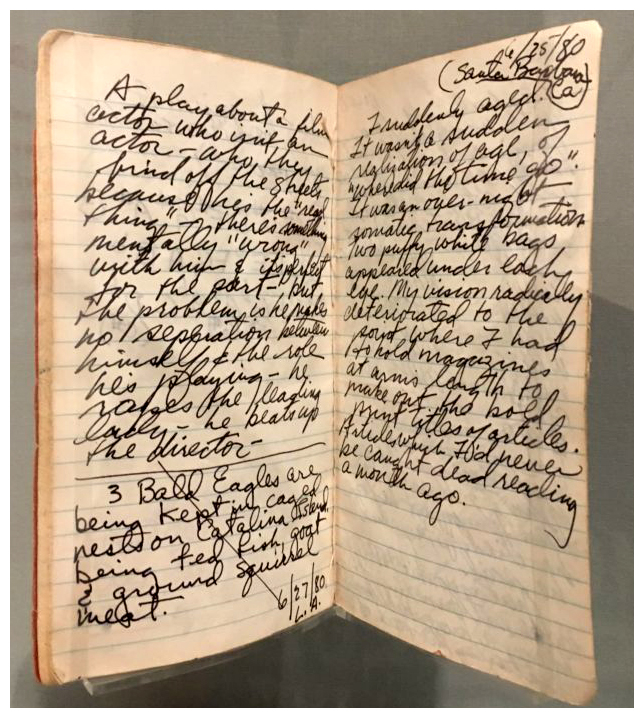 A play about a film
actor who isnt an
actor - who they
find off the streets
because hes the "real
thing" - there's something
mentally "wrong"
with him & its perfect
for the part - but
the problem is he makes
no separation between
himself & the role
hes playing - he
rapes the leading
lady - he beats up
the director -
3 Bald Eagles are
being kept in caged
nests on Catalina Island
being fed fish, goat
& ground squirrel
meat.
6/27/80
L.A.
6/25/80
(Santa Barbara
Ca)
I suddenly aged.
It wasn't a sudden
realization of age, of
"where did the time go".
It was an over-night
somatic transformation
Two puffy white bags
appeared under each
eye. My vision radically
deteriorated to the
point where I had
to hold magazines
at arms length to
make out the bold
print titles of articles.
Articles which I'd never
be caught dead reading
a month ago.